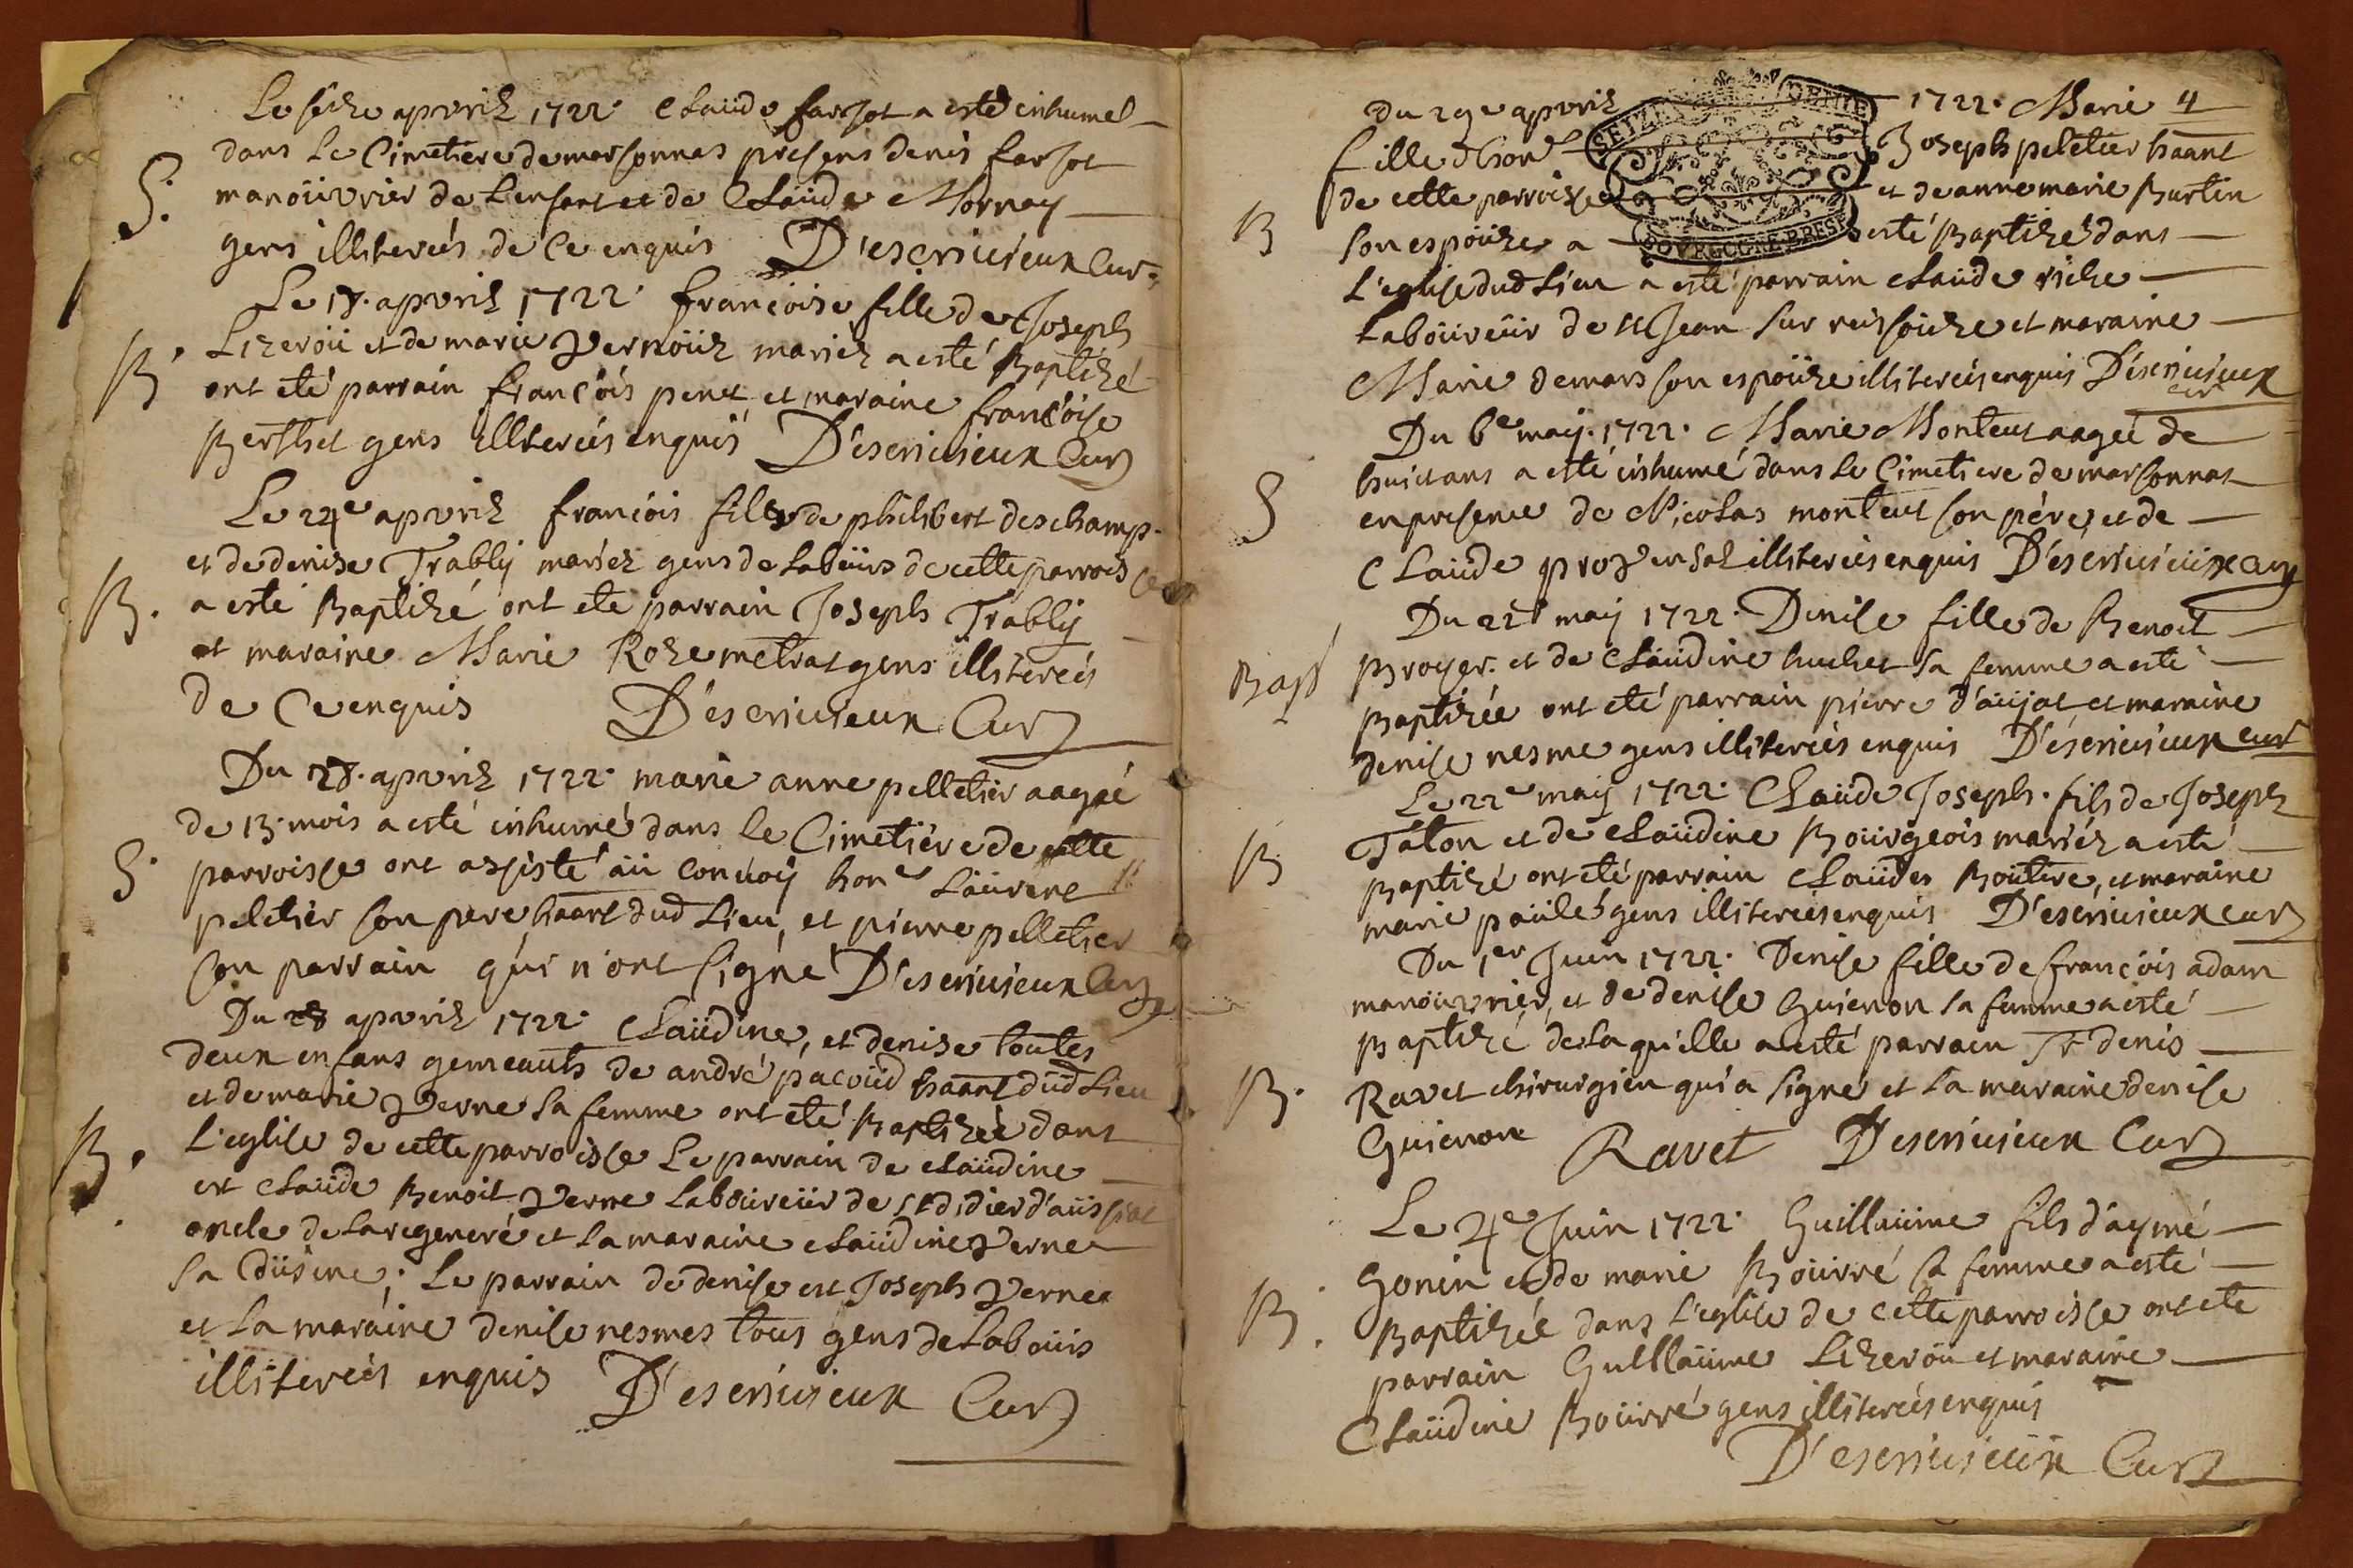 Le seize apvril 1722. Claude farjot a esté inhumé
dans le Cimetiere de marsonnas presens denis farjot
S. manoüvrier de l'enfant et de Claude Mornay
gens illiterés de ce enquis D'escrivieux Cur
Le 18. apvril 1722. françoise fille de Joseph
Lizeroü et de marie Vernoüz mariez a esté Baptizé
B. ont eté parrain françois penet et maraine françoise
Berthet gens illiterés enquis D'escrivieux Cur
Le 24e apvril françois fils de philibert deschamp
et de denise Trably mariez gens de labeurs de cette parroisse
B. a esté Baptizé ont eté parrain Joseph Trably
et maraine Marie Roze metrat gens illiterés
de Ce enquis D'escrivieux Cur
Du 28. apvril 1722. marie anne pelletier aagée
de 13. mois a esté inhumé dans le Cimetiére de cette
S. parroisse ont assisté au convoy hone Laurent
peletier son pere haant dud Lieu, et pierre pelletier
son parrain qui n'ont signé D'escrivieux Cur
Du 28 apvril 1722. Claudine, et denise toutes
deux enfans gemeauts de andré pacoud haant dud Lieu
et de marie Verne sa femme ont eté Baptizée dans
B. L'eglise de cette parroisse Le parrain de claudine
est claude Benoit Verne Laboureur de St didier d'aussiat
oncle de la regeneré et la maraine claudine Verne
sa Cusine; Le parrain de denise est Joseph Verne
et la maraine denise nesmes tous gens de Labours
illiterés enquis D'escrivieux Cur
Du 29e apvril 1722. Marie 4
fille d'hone Joseph peletier haant
de cette parroisse et de anne marie Burtin
B son espouze a esté Baptizé dans
L'eglise dud Lieu a esté parrain claude riche
Laboureur de St Jean sur reissouze et maraine
Marie demars son espouze illiterés enquis D'escrivieux
cur
Du 6e may. 1722. Marie Monteut aagée de
huict ans a esté inhumé dans le Cimetiere de marsonnas
S en presence de Nicolas monteut son pére, et de
Claude illiterés enquis D'escrivieux cur
Du 22 may 1722. Denise fille de Benoit
Bap Broyer. et de claudine huchet sa femme a esté
Baptizée ont eté parrain pierre d'aujat, et maraine
denise nesme gens illiterés enquis D'escrivieux cur
Le 22e may 1722. Claude Joseph. fils de Joseph
B Talon et de claudine Bourgeois mariéz a esté
Baptizé ont eté parrain claude Boutere, et maraine
marie paulé gens illiterés enquis D'escrivieux cur
Du 1er Juin 1722. Denise fille de françois adam
manoüvrier, et de denise Guienon sa femme a esté
Baptizé de laquelle a esté parrain Sr denis
B. Ravet chirurgien qui a signé et la maraine denise
Guienon Ravet Descrivieux Cur
Le 4e Juin 1722. Guillaume fils d'aymé
Gonin et de marie Bourré sa femme a esté
B. Baptizée dans L'eglise de cette parroisse ont eté
parrain Guillaume Lizeroü et maraine
Claudine Bourré gens illiterés enquis
D'escrivieux Cur